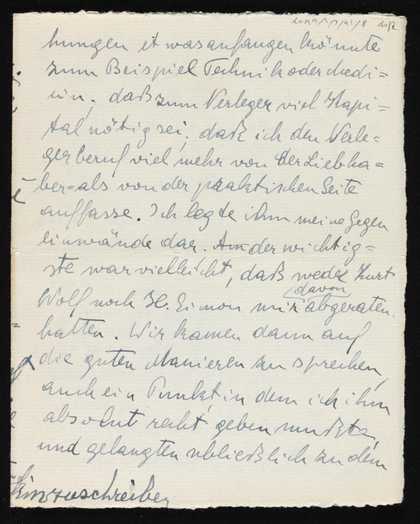 hungen etwas anfangen könnte
zum Beispiel Technik oder Medi=
zin, daß zum Verleger viel Kapi=
tal nötig sei, daß ich den Verle=
gerberuf viel mehr von der Liebha=
ber=als von der praktischen Seite
auffasse. Ich legte ihm meine Gegen
einwände dar. Am der wichtig=
ste war vielleicht, daß weder Kurt
Wolf noch H. Simon mir davon abgeraten
hatten. Wir kamen dann auf
die guten Manieren zu sprechen,
auch ein Punkt, in dem ich ihm
absolut recht geben mußte,
und gelangten schließlich zu dem
hinzuschreiben